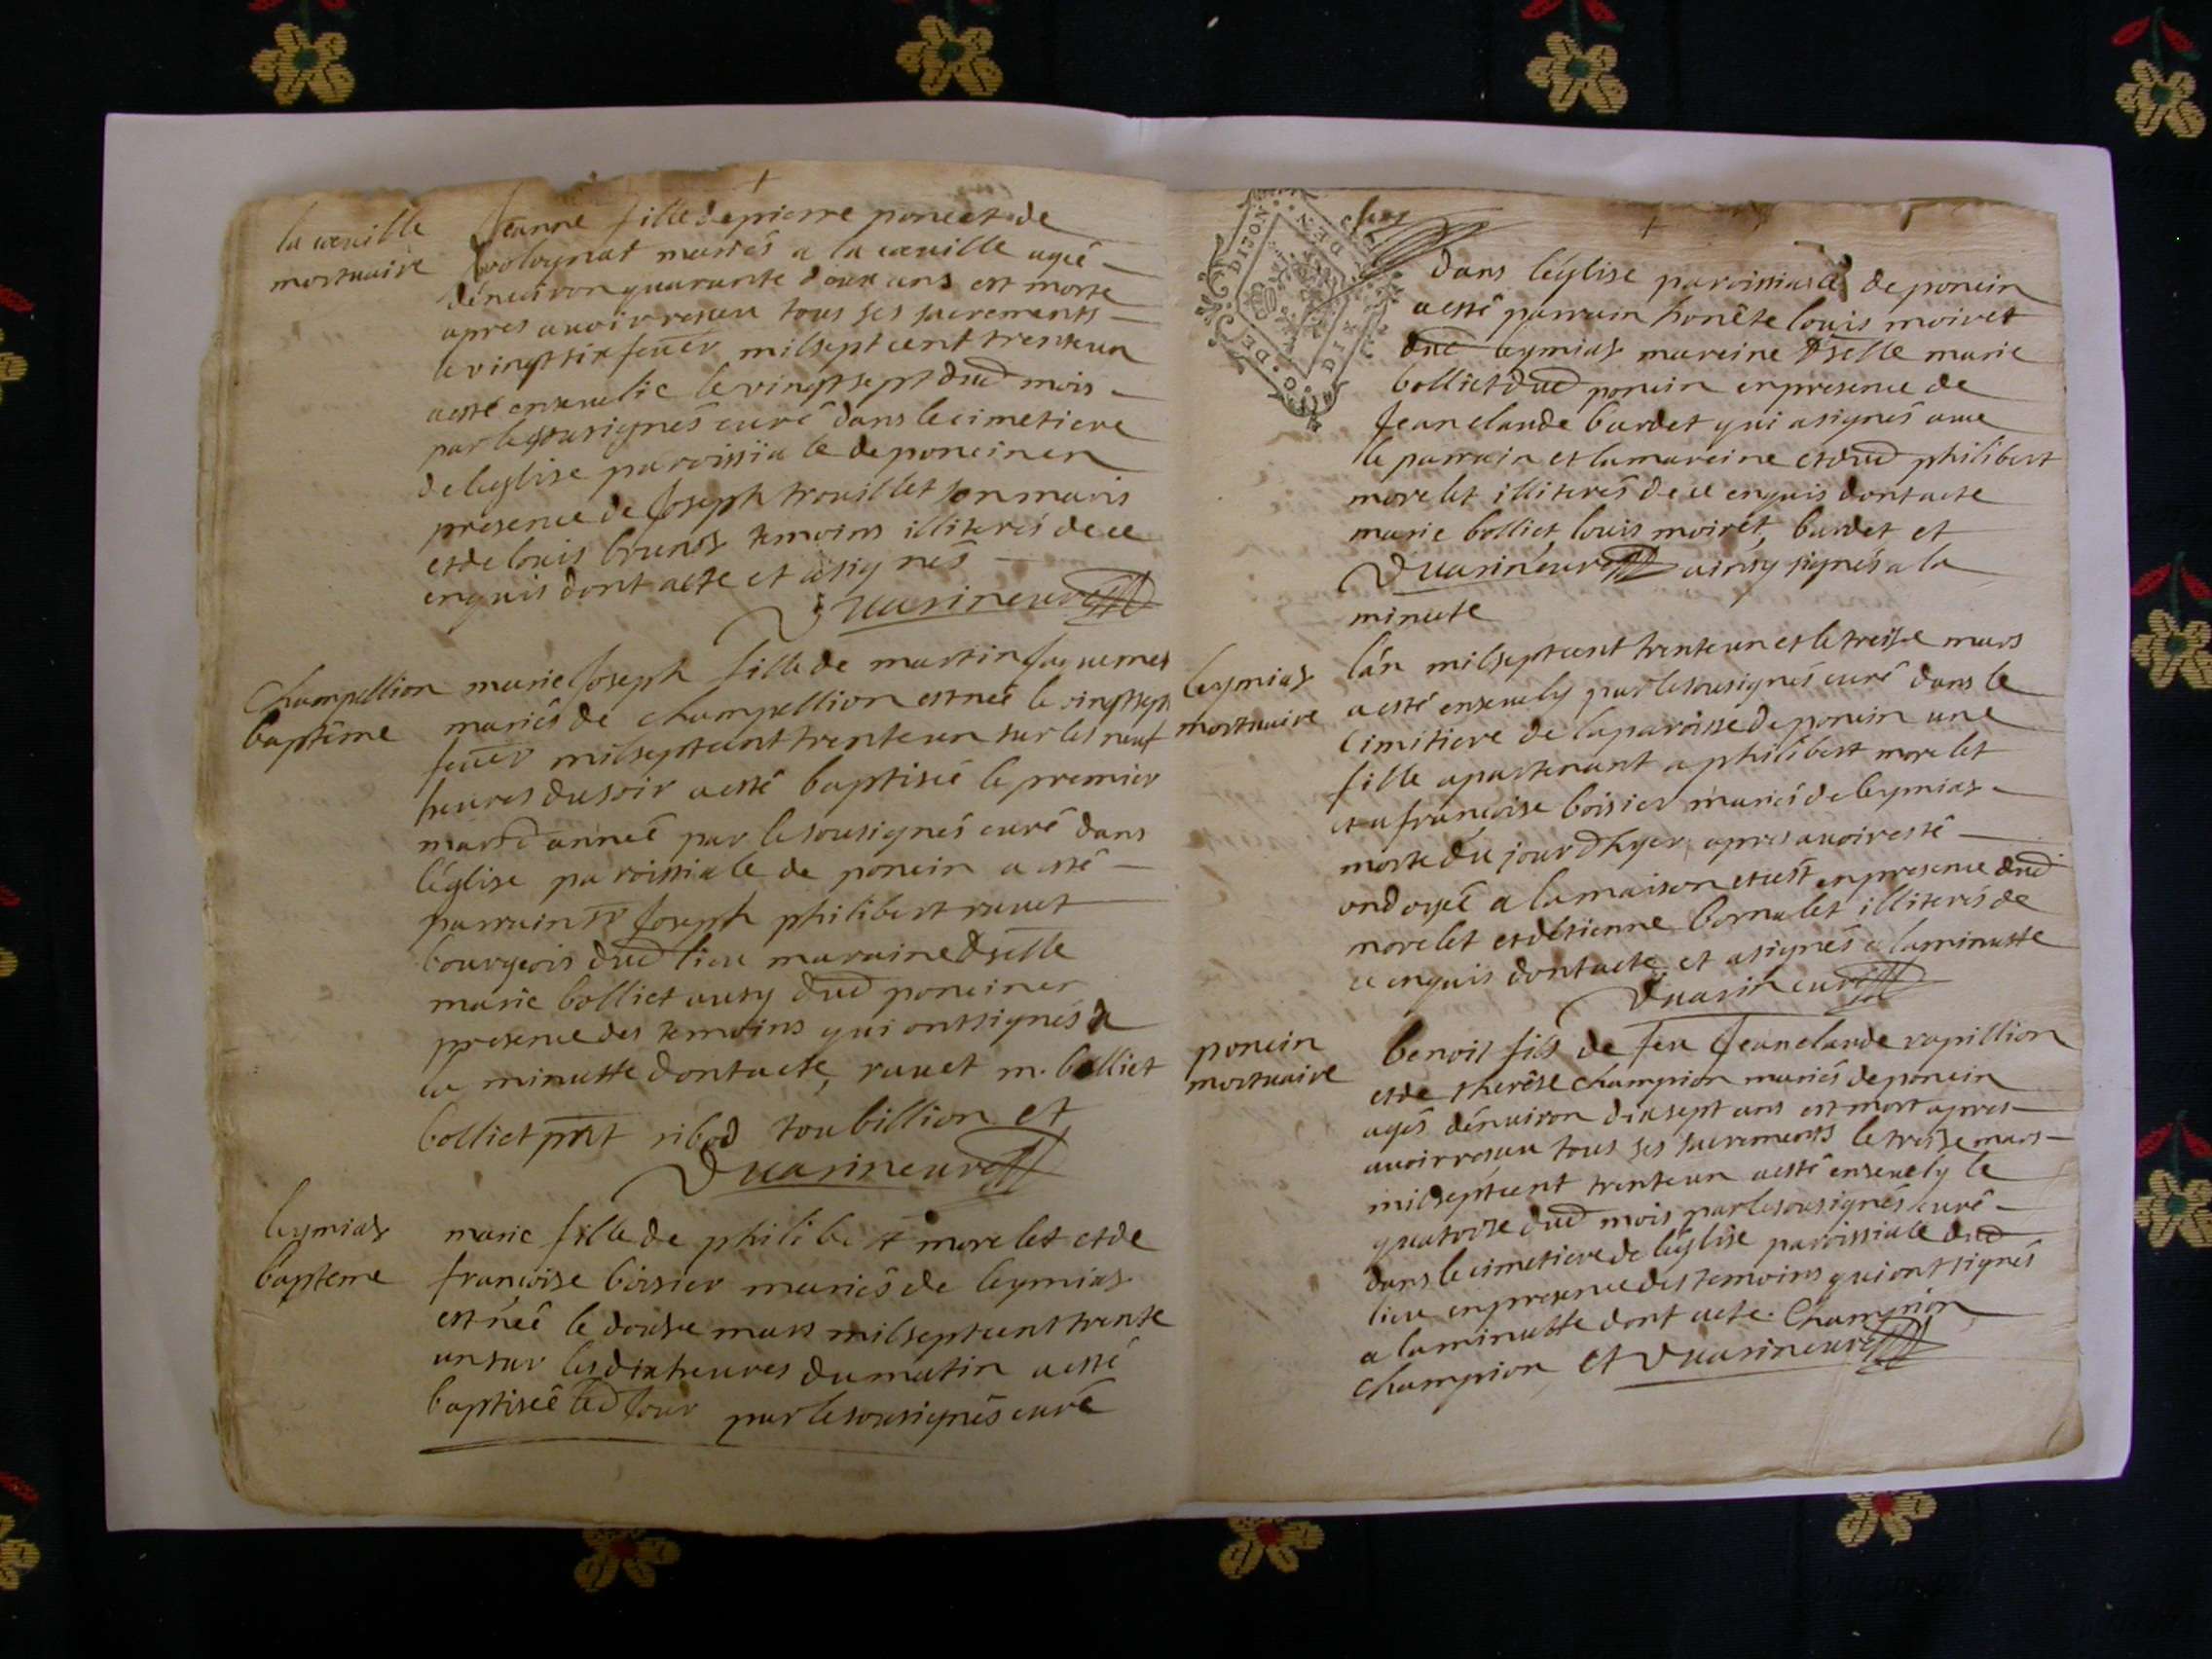 la cueuille
mortuaire
Jeanne fille de pierre poncet de
bolognat mariés a la cueuille agée
dénuiron quarante deux ans est morte
apres auoir reseu tous ses sacrements
le vingt six feuer milsept cent trenteun
aesté enseuelie le vingt sept dud mois
par le sousignés curé dans le cimetiere
de leglise paroissiale de poncin en
presence de Joseph trouillet son maris
et de louis temoins illiterés de ce
enquis dont acte et a signés
Duarin curé
Champellion
baptême
marie Joseph fille de martin Jaquemet
mariés de champellion est née le vingt sept
feuer milsept cent trente un sur les neuf
heures du soir a esté baptiseé le premier
mars d anneé par le sousignés curé dans
léglise paroissiale de poncin a esté
parrain sr Joseph philibert rauet
bourgeois dud lieu maraine dselle
marie bolliet ausy dud poncin en
presence des temoins qui ont signés a
la minutte dont acte, rauet m. bolliet
bolliet pnt ribod toubillion et
Duarin curé
leymiat
bapteme
marie fille de philibert morelet et de
francoise boisier mariés de leymiat
est néé le douse mars milsept cent trente
un sur les dix heures du matin a esté
baptiseé led Jour par le sousignés curé
DIJON
dans léglise paroissiale de poncin
a esté parrain honête louis moiret
dud leymiat mareine dselle marie
bolliet dud poncin en presence de
Jean claude bardet qui a signés auec
le parrain et la mareine et dud philibert
morelet illiterés de ce enquis dont acte
marie bolliet, louis moirét, bardet et
Duarin curé ainsy signés a la
minute
leymiat
mortuaire
lán milsept cent trente un et le treise mars
a esté enseuely par le sousignés curé dans le
cimitiere de la paroisse de poncin une
fille apartenant a philibert morelet
et a françoise boisier mariés de leymiat
morte du jour d hyer apres auoir esté
ondoyeé a la maison et cest en presence dud
morelet et détienne bornalet illiterés de
ce enquis dont acte, et a signés a la minutte
Duarin curé
poncin
mortuaire
benoit fils de feu Jean claude rapillion
et de therêse champion mariés de poncin
agés dénuiron dix sept ans est mort apres
auoir reseu tous ses sacrements le treise mars
milsept cent trente un a esté enseuely le
quatorse dud mois par le sousignés curé
dans le cimetiere de léglise paroissiale dud
lieu en presence des temoins qui ont signés
a la minutte dont acte. Champion
champion et Duarin curé